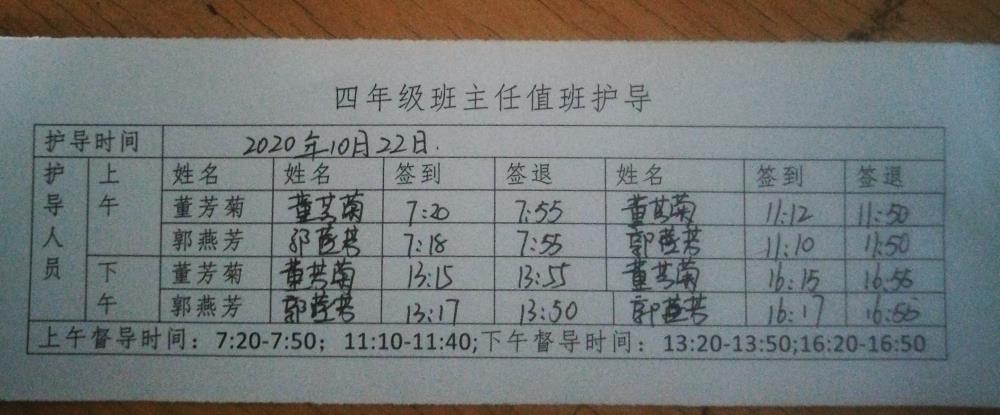 四年级班主任值班护导
护导时间 2020年10月22日.
护导人员 上午 姓名 姓名 签到 签退 姓名 签到 签退
董芳菊 董芳菊 7:20 7:55 董芳菊 11:12 11:50
郭燕芳 郭燕芳 7:18 7:55 郭燕芳 11:10 11:50
下午 董芳菊 董芳菊 13:15 13:55 董芳菊 16:15 16:55
郭燕芳 郭燕芳 13:17 13:50 郭燕芳 16:17 16:55
上午督导时间：7:20-7:50；11:10-11:40;下午督导时间：13:20-13:50;16:20-16:50